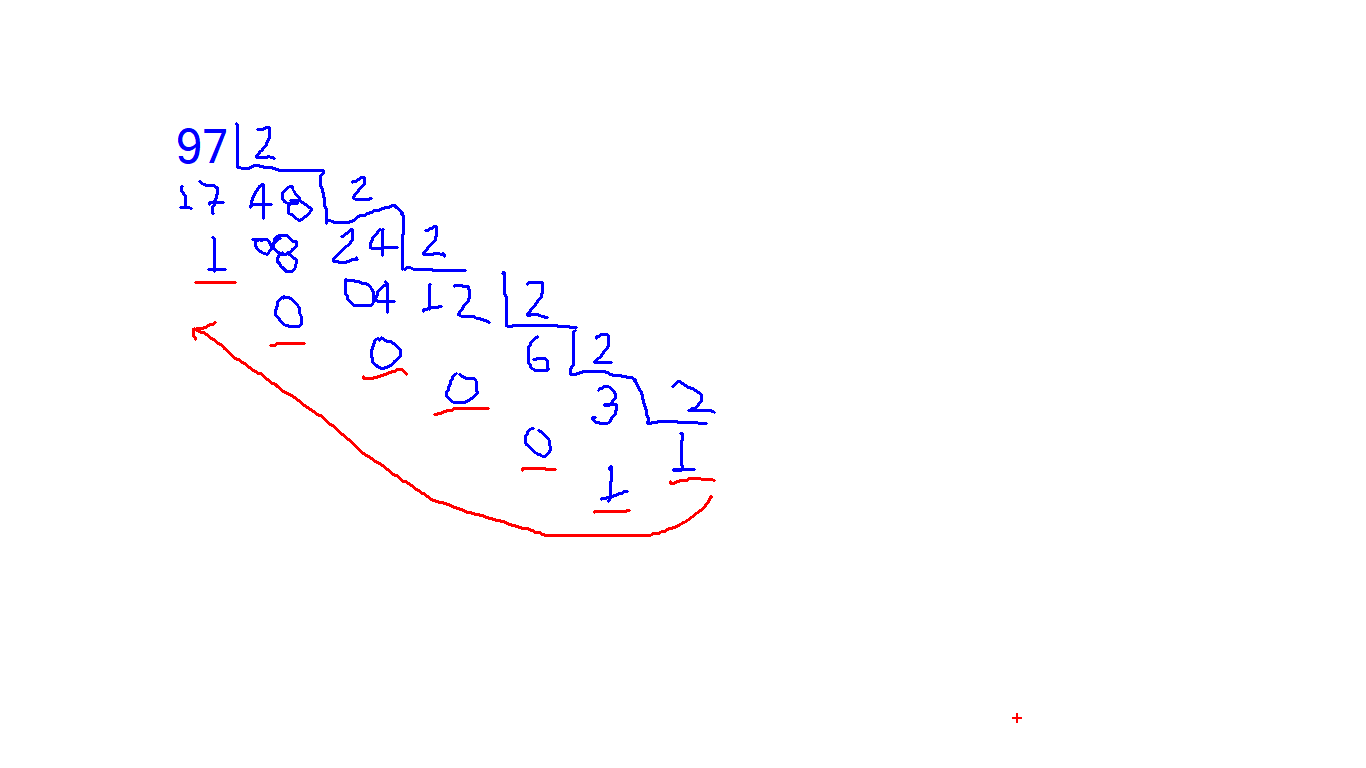 97 2
17 48 2
1 08 24 2
0 04 12 2
0 0 6 2
0 3 2
0 1
1